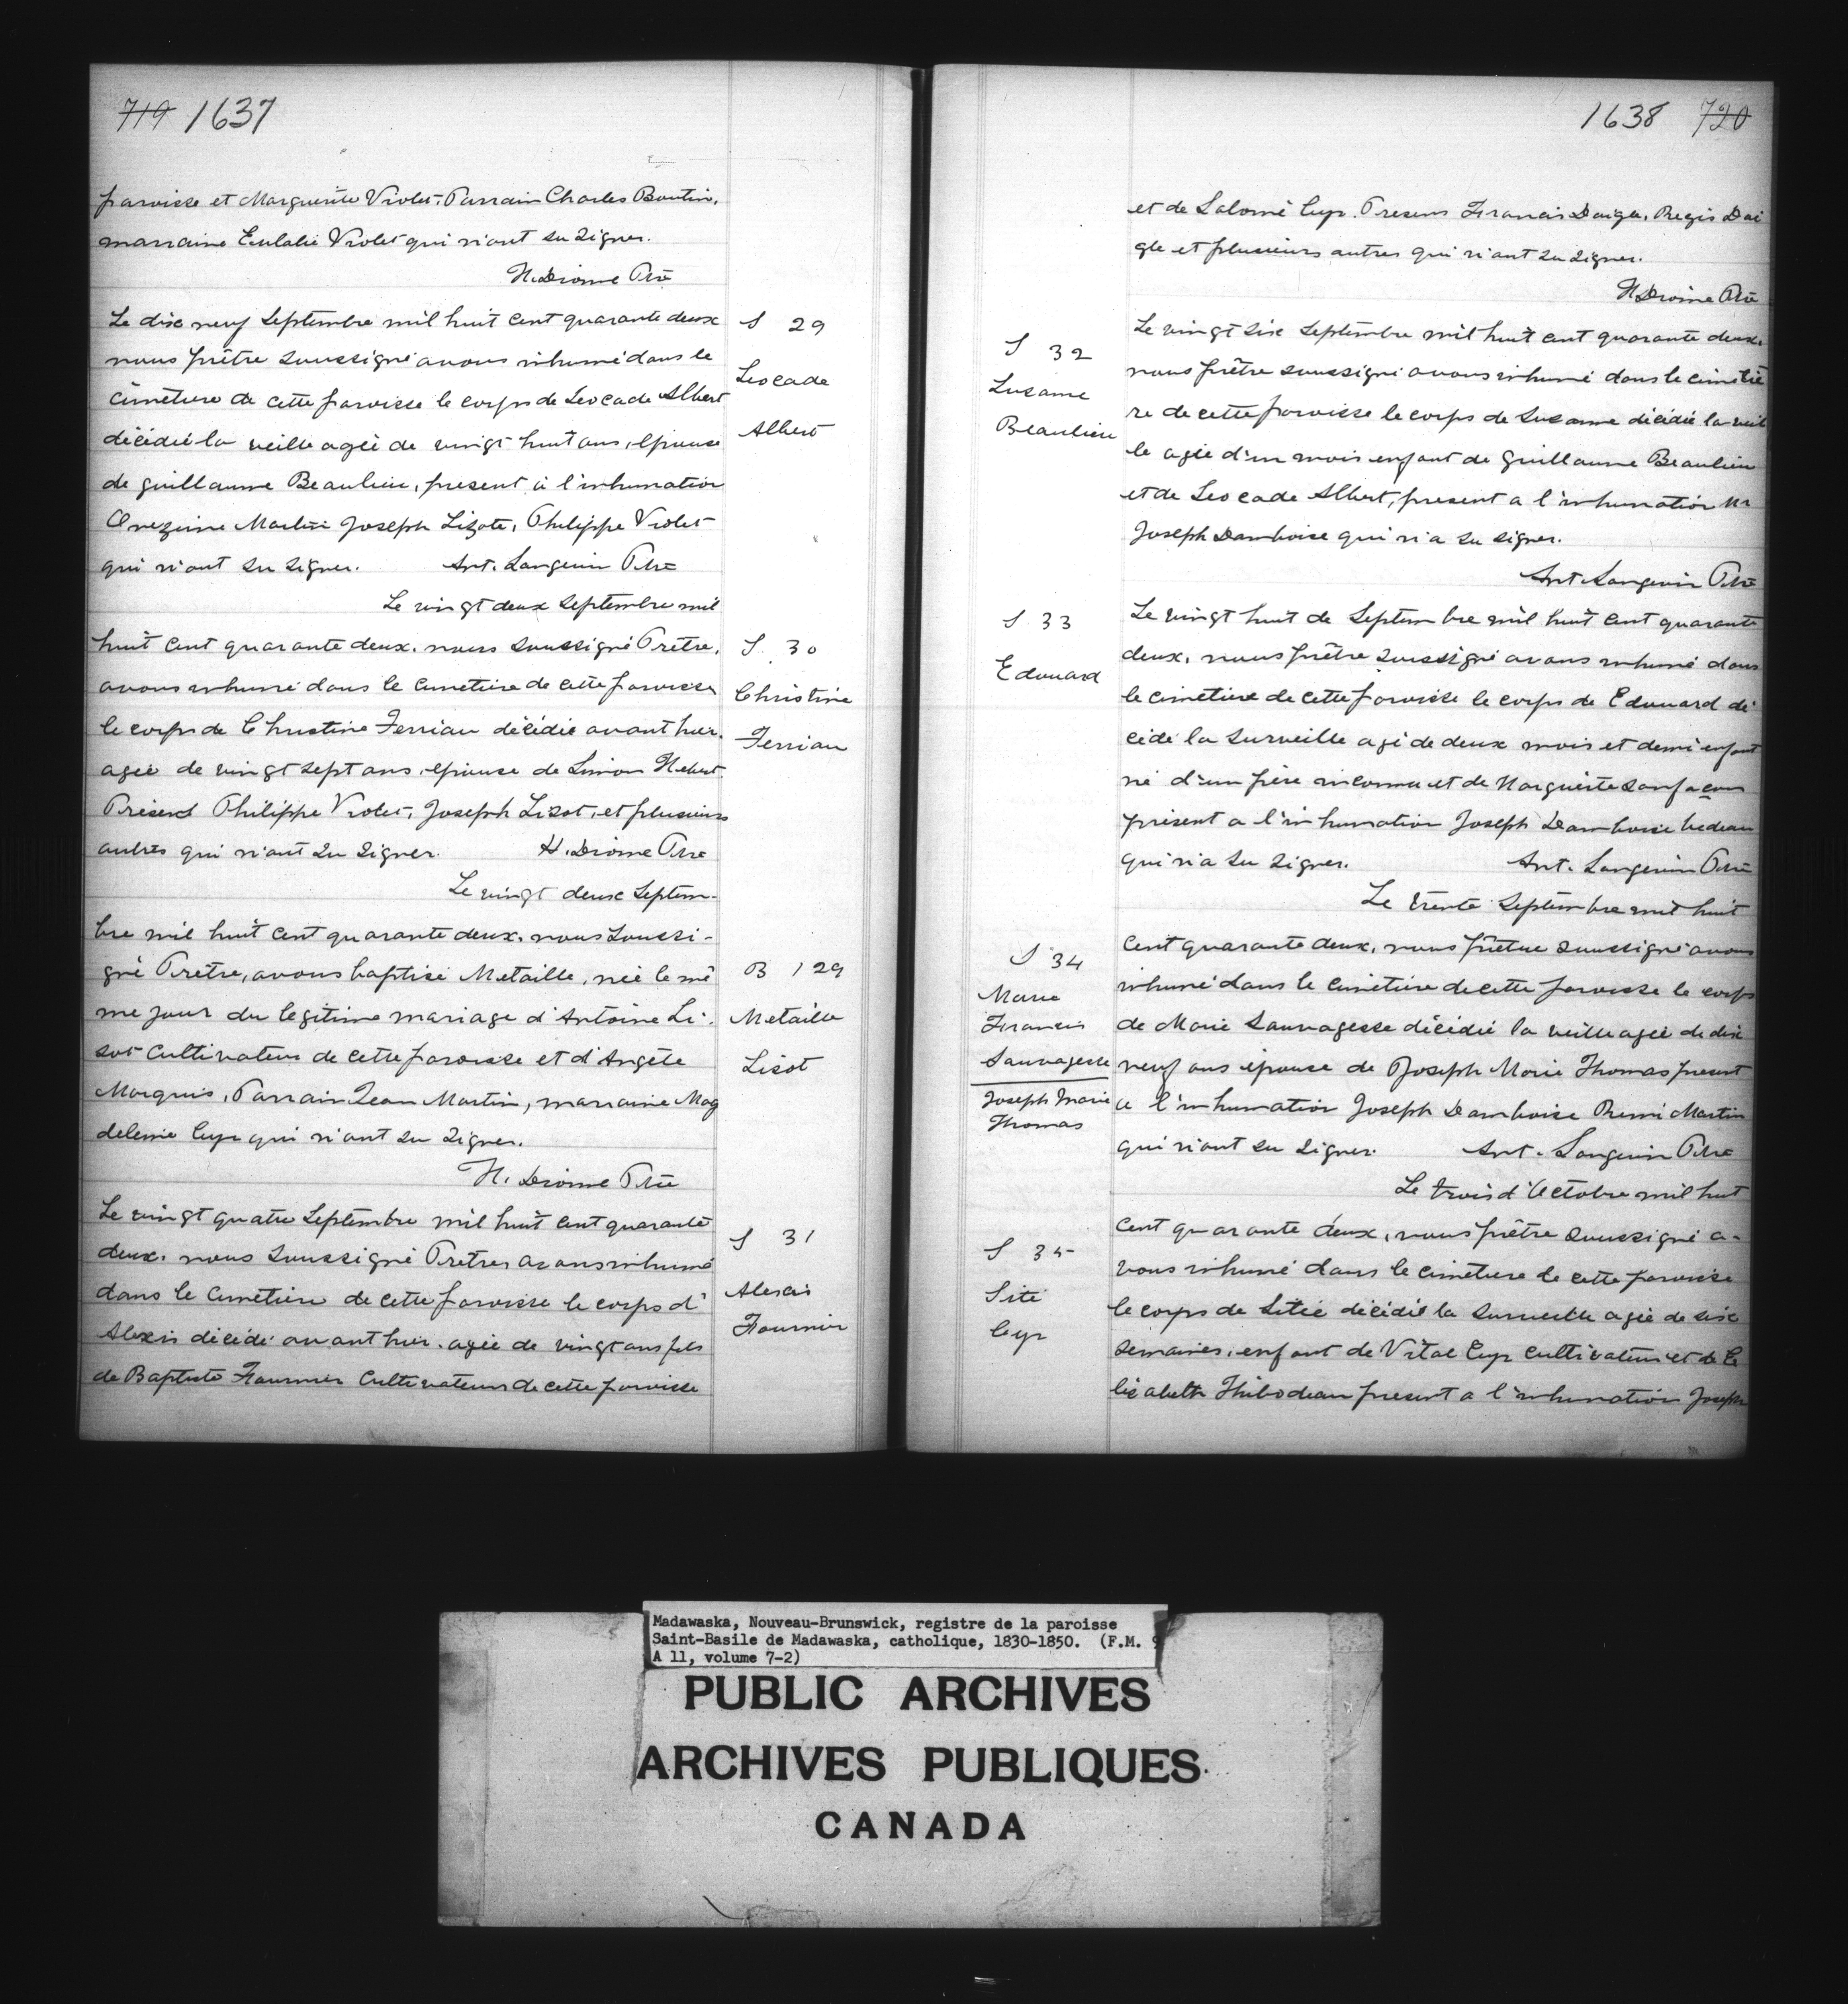 719 1637
paroisse et Marguerite Violet, Parrain Charles Boutin,
marraine Eulalie Violet qui n'ont su signer.
H. Drome Ptre
Le dix neuf Septembre mil huit cent quarante deux
nous prêtre soussigné avons inhumé dans le
cimetiere de cette paroisse le corps de Leocade Albert
décédée la veille agée de vingt huit ans, épouse
de guillaume Beaulieu, present à l'inhumation
Onezime Martin Joseph Lizote, Philippe Violet
qui n'ont su signer. Ant. Langevin Ptre
S 29
Leocade
Albert
Le vingt deux Septembre mil
huit cent quarante deux, nous soussigné Prêtre,
avons inhumé dans le cimetiere de cette paroisse
le corps de Christine Ferriau décédée avant hier,
agée de vingt sept ans, épouse de Simon Hebert.
Présent Philippe Violet, Joseph Lizot, et plusieurs
autres qui n'ont su signer. H. Drome Ptre
S. 30
Christine
Ferriau
Le vingt deux Septem-
bre mil huit cent quarante deux, nous soussi-
gné Prêtre, avons baptisé Metaille, née le mê
me jour du legitime mariage d'Antoine Li-
sot Cultivateur de cette paroisse et d'Angèle
Marquis, Parrain Jean Martin, marraine Mag
deleine Cyr qui n'ont su signer.
H. Drome Ptre
B 129
Metaille
Lisot
Le vingt quatre Septembre mil huit cent quarante
deux, nous soussigné Prêtres avons inhumé
dans le Cimetière de cette paroisse le corps d'
Alexis décédé avant hier, agée de vingt ans fils
de Baptiste Fournier Cultivateur de cette paroisse
S 31
Alexis
Fournier
1638 720
et de Salomé Cyr. Presens Francis Daigle, Regis Dai
gle et plusieurs autres qui n'ont su signer.
H Drome Ptre
S 32
Susanne
Beaulieu
Le vingt six Septembre mil huit cent quarante deux,
nous prêtre soussigné avons inhumé dans le cimetiè
re de cette paroisse le corps de Susanne décédée la veil
le agée d'un mois enfant de Guillaume Beaulieu
et de Leocade Albert, present a l'inhumation
Joseph Damboise qui n'a su signer.
Ant. Langevin Ptre
S 33
Edouard
Le vingt huit de Septembre mil huit cent quarante
deux, nous prêtre soussigné avons inhumé dans
le cimetiere de cette paroisse le corps de Edouard dé
cédé la surveille agé de deux mois et demi enfant
né d'un père inconnu et de Marguerite Sanfacon
présent a l'inhumation Joseph Damboise bedeau
qui n'a su signer. Ant. Langevin Ptre
Le trente Septembre mil huit
cent quarante deux, nous prêtre soussigné avons
inhumé dans le cimetiere de cette paroisse le corps
de Marie Sauvagesse décédée la veille agée de dix
neuf ans épouse de Joseph Marie Thomas present
a l'inhumation Joseph Damboise Remi Martin
qui n'ont su signer. Ant. Langevin Ptre
S 34
Marie
Francis
Sauvagesse
Joseph Marie
Thomas
Le trois d'Octobre mil huit
cent quarante deux, nous prêtre soussigné a-
vons inhumé dans le cimetiere de cette paroisse
le corps de Sitée décédée la surveille agée de six
semaines, enfant de Vital Cyr cultivateur et de E
lisabeth Thibodeau present a l'inhumation Joseph
S 35
Sité
Cyr
Madawaska, Nouveau-Brunswick, registre de la paroisse
Saint-Basile de Madawaska, catholique, 1830-1850. (F.M. 9
A 11, volume 7-2)
PUBLIC ARCHIVES
ARCHIVES PUBLIQUES
CANADA